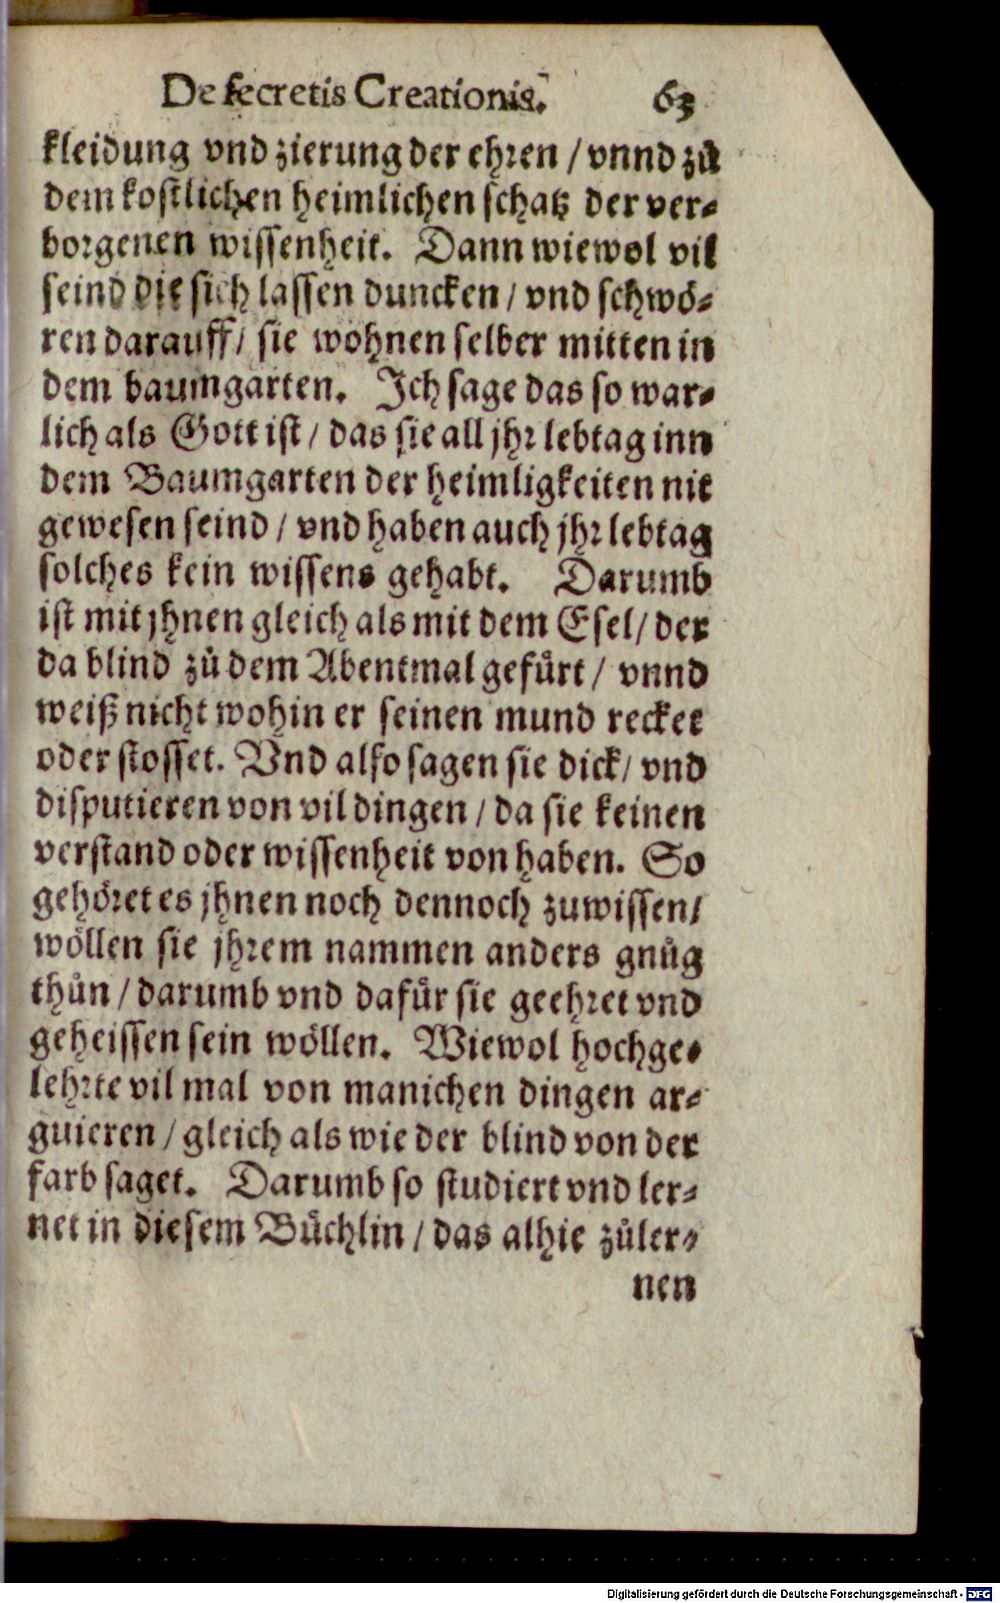 De secretis Creationis. 63
kleidung vnd zierung der ehren / vnnd zů
dem kostlichen heimlichen schatz der ver-
borgenen wissenheit. Dann wiewol vil
seind die sich lassen duncken / vnd schwö-
ren darauff / sie wohnen selber mitten in
dem baumgarten. Ich sage das so war-
lich als Gott ist / das sie all jhr lebtag inn
dem Baumgarten der heimligkeiten nit
gewesen seind / vnd haben auch jhr lebtag
solches kein wissens gehabt. Darumb
ist mit jhnen gleich als mit dem Esel / der
da blind zů dem Abentmal gefürt / vnnd
weiß nicht wohin er seinen mund recket
oder stosset. Vnd also sagen sie dick / vnd
disputieren von vil dingen / da sie keinen
verstand oder wissenheit von haben. So
gehöret es jhnen noch dennoch zuwissen /
wöllen sie jhrem nammen anders gnůg
thůn / darumb vnd dafür sie geehret vnd
geheissen sein wöllen. Wiewol hochge-
lehrte vil mal von manichen dingen ar-
guieren / gleich als wie der blind von der
farb saget. Darumb so studiert vnd ler-
net in diesem Büchlin / das alhie zůler-
nen
Digitalisierung gefördert durch die Deutsche Forschungsgemeinschaft - DFG